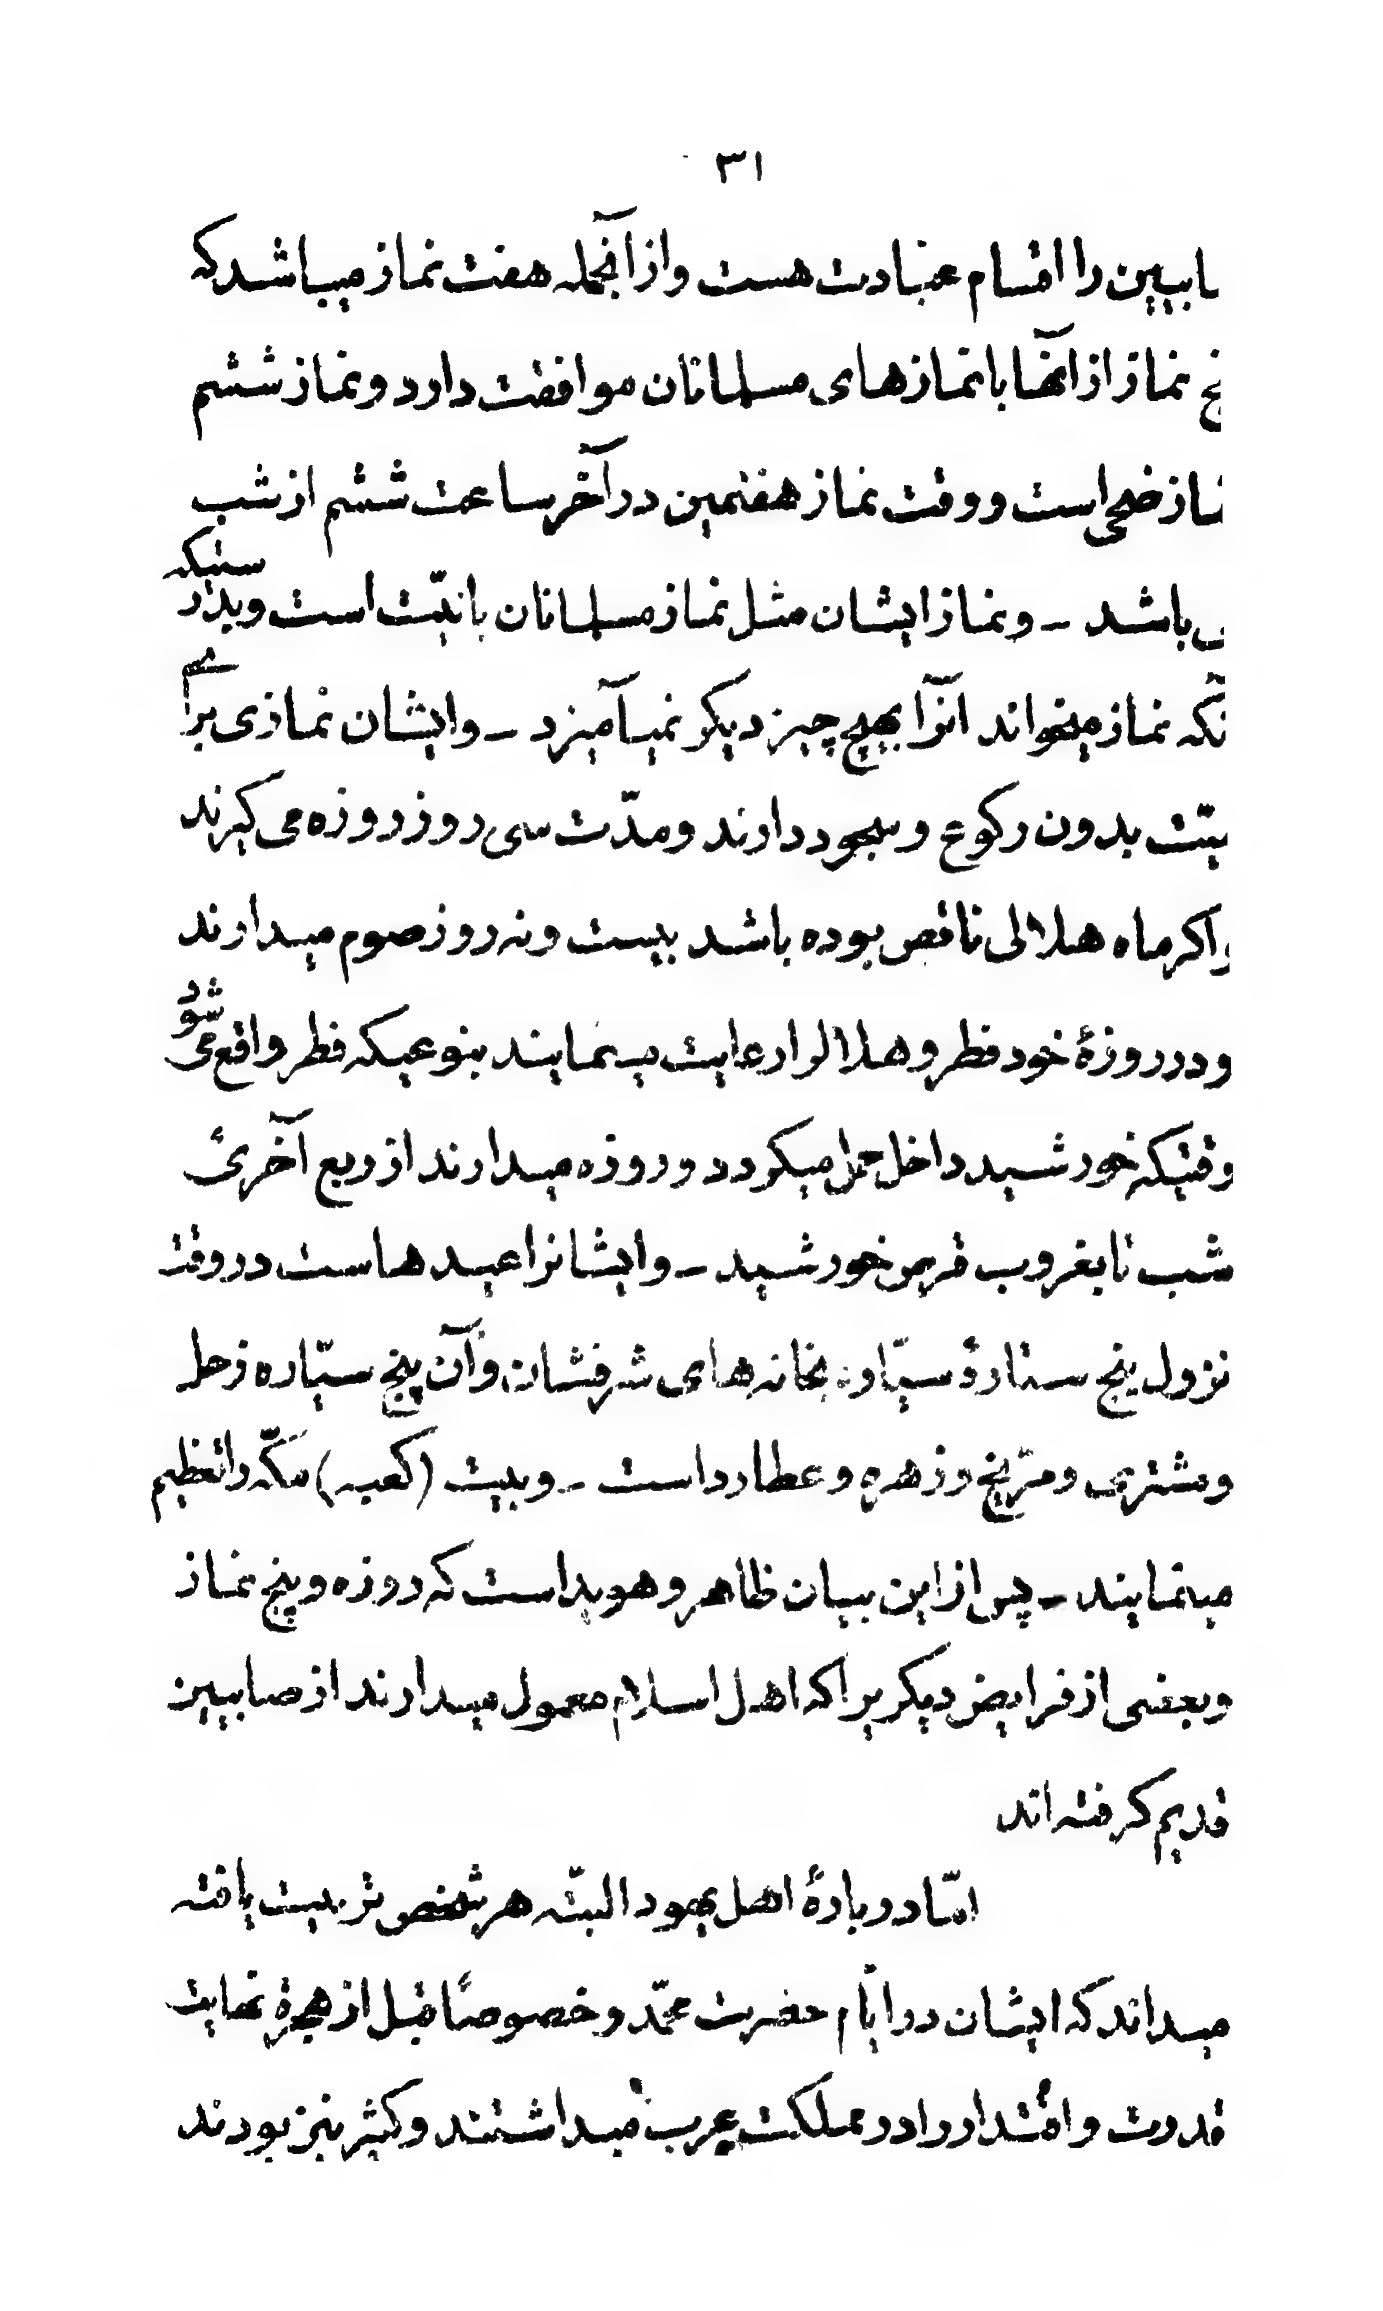 ۳۱
ابیین را اقسام عبادت هست و از آنجمله هفت نماز میباشد که
نج نماز از آنها با نمازهای مسلمانان موافقت دارد و نماز ششم
ماز ضحی است و وقت نماز هفتمین در آخر ساعت ششم از شب
ی باشد - و نماز ایشان مثل نماز مسلمانان با نیّت است و بدرستیکه
نکه نماز میخواند آنرا بهیچ چیز دیکر نمیآمیزد - و ایشان نمازی برای
میّت بدون رکوع و سجود دارند و مدّت سی روز روزه می کیرند
و اکر ماه هلالی ناقص بوده باشد بیست و نه روز صوم میدارند
و در روزهٔ خود فطر و هلال را رعایت می نمایند بنوعیکه فطر واقع می شود
وقتیکه خورشید داخل حمل میکردد و روزه میدارند از ربع آخریٔ
شب تا بغروب قرص خورشید - و ایشانرا عیدهاست در وقت
نزول پنج ستارهٔ سیّاره بخانه های شرفشان و آن پنج سیّاره زحل
و مشتری و مرّیخ و زهره و عطارد است - و بیت (کعبه) مکّه را تعظیم
مینمایند - پس از این بیان ظاهر و هویداست که روزه و پنج نماز
و بعضی از فرایض دیکر یرا که اهل اسلام معمول میدارند از صابیین
قدیم کرفته اند
امّا در بارهٔ اهل یهود البتّه هر شخص تربیت یافته
میداند که ایشان در ایّام حضرت محمّد و خصوصاً قبل از هجرة نهایت
قدرت و اقتدار را در مملکت عرب میداشتند و کثیر نیز بودند